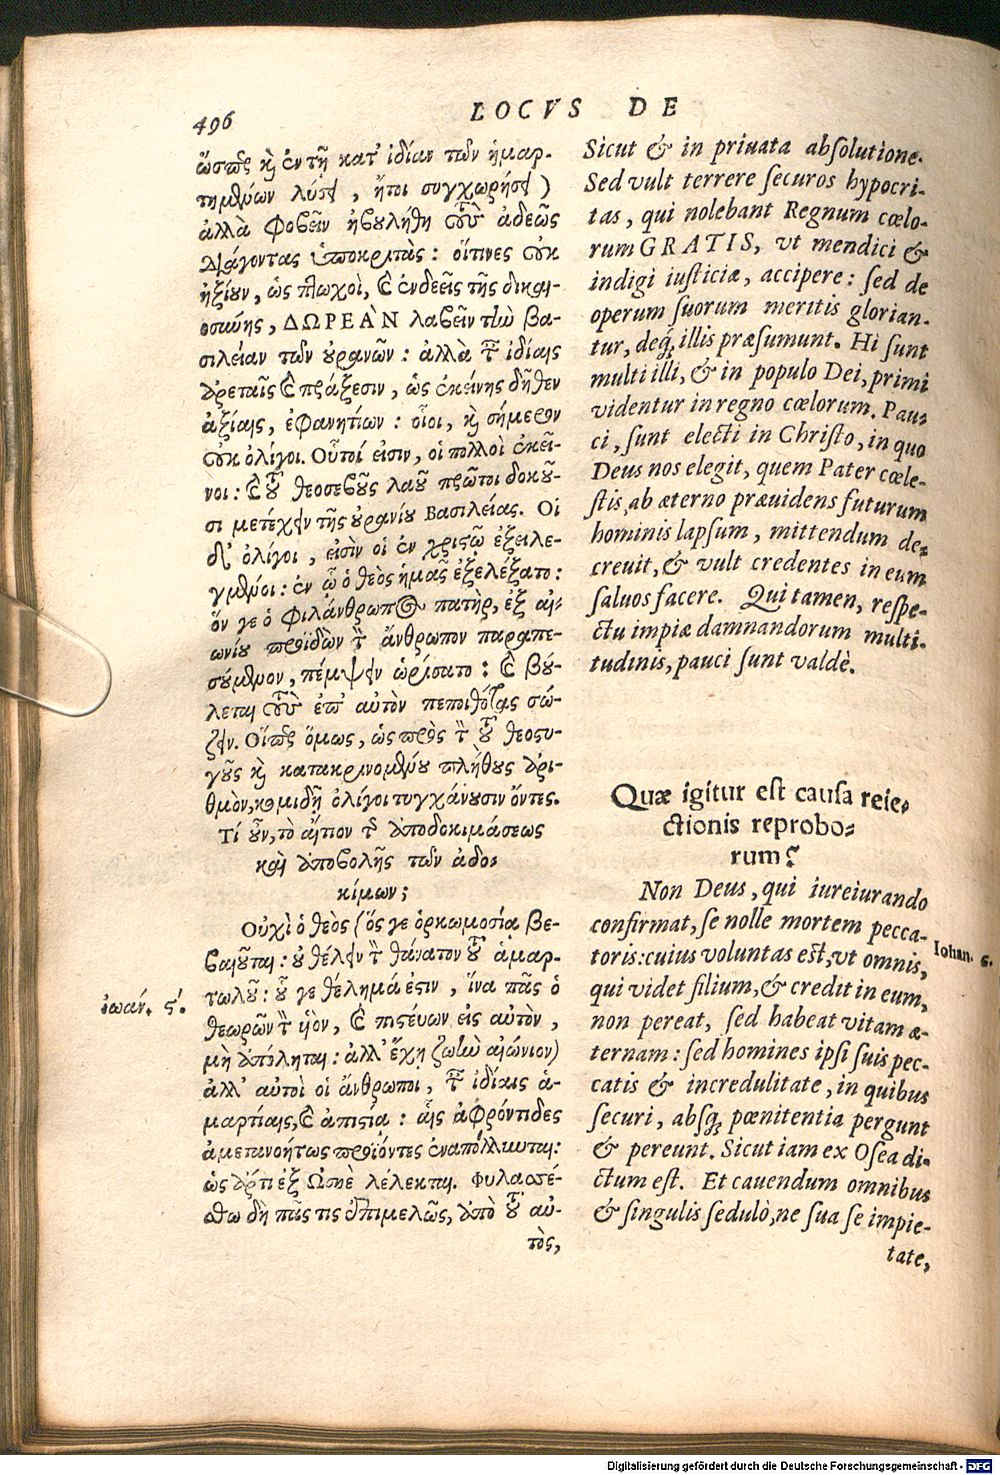 496
LOCVS DE
ὥσπερ καὶ ἐν τῇ κατ' ἰδίαν τῶν ἡμαρ-
τημένων λύσει, ἤτοι συγχωρήσει)
ἀλλὰ φοβεῖν ἠβουλήθη τοὺς ἀδεῶς
διάγοντας ὑποκριτὰς: οἵτινες οὐκ
ἠξίουν, ὡς πτωχοὶ, καὶ ἐνδεεῖς τῆς δικαι-
οσύνης, ΔΩΡΕΑΝ λαβεῖν τὴν βα-
σιλείαν τῶν οὐρανῶν: ἀλλὰ ταῖς ἰδίαις
ἀρεταῖς καὶ πράξεσιν, ὡς ἐκείνης δῆθεν
ἀξίαις, ἐφανητίων: οἷοι, καὶ σήμερον
οὐκ ὀλίγοι. Οὗτοί εἰσιν, οἱ πολλοὶ ἐκεῖ-
νοι: καὶ τοῦ θεοσεβοῦς λαοῦ πρῶτοι δοκοῦ-
σι μετέχειν τῆς οὐρανίου Βασιλείας. Οἱ
δ' ὀλίγοι, εἰσὶν οἱ ἐν χριστῷ ἐξειλε-
γμένοι: ἐν ᾧ ὁ θεὸς ἡμᾶς ἐξελέξατο:
ὅν γε ὁ φιλάνθρωπος πατὴρ, ἐξ αἰ-
ωνίου προϊδὼν τὸν ἄνθρωπον παραπε-
σούμενον, πέμψειν ὡρίσατο: καὶ βού-
λεται τοὺς ἐπ' αὐτὸν πεποιθότας σώ-
ζειν. Οἵπερ ὅμως, ὡς πρὸς τὸν τοῦ θεοστυ-
γοῦς καὶ κατακρινομένου πλήθους ἀρι-
θμὸν, κομιδῇ ὀλίγοι τυγχάνουσιν ὄντες.
Τί οὖν, τὸ αἴτιον τῆς ἀποδοκιμάσεως
καὶ ἀποβολῆς τῶν ἀδο-
κίμων;
Οὐχὶ ὁ θεὸς (ὅς γε ὁρκωμοσίᾳ βε-
βαιοῦται: οὐ θέλειν τὸν θάνατον τοῦ ἁμαρ-
τωλοῦ: οὗ γε θέλημά ἐστιν, ἵνα πᾶς ὁ
θεωρῶν τὸν υἱὸν, καὶ πιστεύων εἰς αὐτὸν,
μὴ ἀπόληται: ἀλλ' ἔχῃ ζωὴν αἰώνιον)
ἀλλ' αὐτοὶ οἱ ἄνθρωποι, ταῖς ἰδίαις ἁ-
μαρτίαις, καὶ ἀπιστίᾳ: αἷς ἀφρόντιδες
ἀμετανοήτως προϊόντες ἐναπόλλυνται:
ὡς ἄρτι ἐξ Ὠσηὲ λέλεκται. Φυλαττέ-
σθω δὴ πᾶς τις ἐπιμελῶς, ἀπὸ τοῦ αὐ-
τὸς,
ἰωάν. ϛ'.
Sicut & in priuata absolutione.
Sed vult terrere securos hypocri-
tas, qui nolebant Regnum cœlo-
rum GRATIS, vt mendici &
indigi iusticiæ, accipere: sed de
operum suorum meritis glorian-
tur, deq́; illis præsumunt. Hi sunt
multi illi, & in populo Dei, primi
videntur in regno cœlorum. Pau-
ci, sunt electi in Christo, in quo
Deus nos elegit, quem Pater cœle-
stis, ab æterno præuidens futurum
hominis lapsum, mittendum de-
creuit, & vult credentes in eum
saluos facere. Qui tamen, respe-
ctu impiæ damnandorum multi-
tudinis, pauci sunt valdè.
Quæ igitur est causa reie-
ctionis reprobo-
rum?
Non Deus, qui iureiurando
confirmat, se nolle mortem pecca-
toris: cuius voluntas est, vt omnis,
qui videt filium, & credit in eum,
non pereat, sed habeat vitam æ-
ternam: sed homines ipsi suis pec-
catis & incredulitate, in quibus
securi, absq; pœnitentia pergunt
& pereunt. Sicut iam ex Osea di-
ctum est. Et cauendum omnibus
& singulis sedulò, ne sua se impie-
tate,
Iohan. 6.
Digitalisierung gefördert durch die Deutsche Forschungsgemeinschaft - DFG